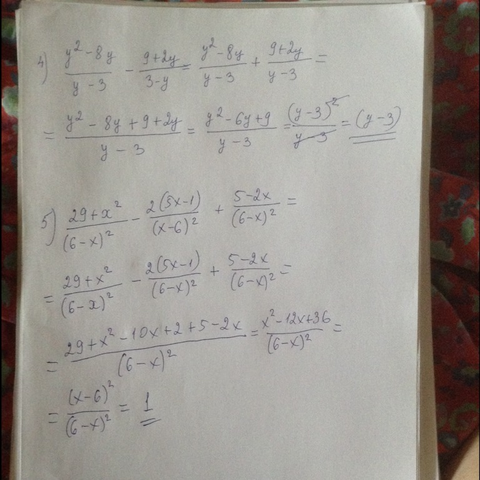 4) (y² - 8y)/(y - 3) - (9 + 2y)/(3 - y) = (y² - 8y)/(y - 3) + (9 + 2y)/(y - 3) =
= (y² - 8y + 9 + 2y)/(y - 3) = (y² - 6y + 9)/(y - 3) = (y - 3)²/(y - 3) = (y - 3)
5) (29 + x²)/(6 - x)² - 2(5x - 1)/(x - 6)² + (5 - 2x)/(6 - x)² =
= (29 + x²)/(6 - x)² - 2(5x - 1)/(6 - x)² + (5 - 2x)/(6 - x)² =
= (29 + x² - 10x + 2 + 5 - 2x)/(6 - x)² = (x² - 12x + 36)/(6 - x)² =
= (x - 6)²/(6 - x)² = 1